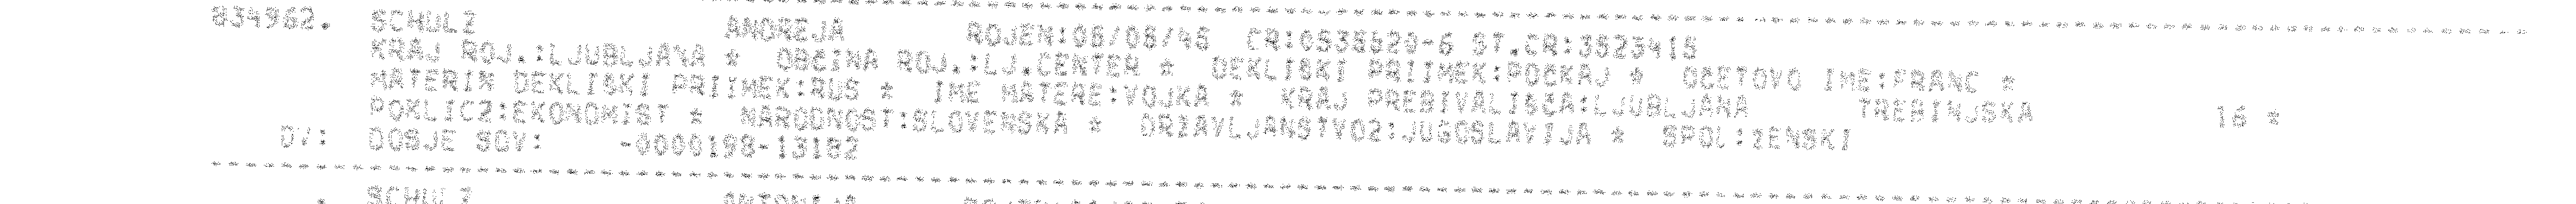 834962. SCHULZ ANDREJA ROJEN:08/08/46 CR:0535620-6 ST.CR:3523415
KRAJ ROJ.:LJUBLJANA * OBČINA ROJ.:LJ.CENTER * DEKLIŠKI PRIIMEK:POČKAJ * OČETOVO IME:FRANC *
MATERIN DEKLIŠKI PRIIMEK:RUS * IME MATERE:VOJKA * KRAJ PREBIVALIŠČA:LJUBLJANA TREBINJSKA 16 *
POKLIC2:EKONOMIST * NARODNOST:SLOVENSKA * DRŽAVLJANSTVO2:JUGOSLAVIJA * SPOL:ŽENSKI
DV: DOSJE SDV: -0000198-13182
SCHULZ ANTONIJA